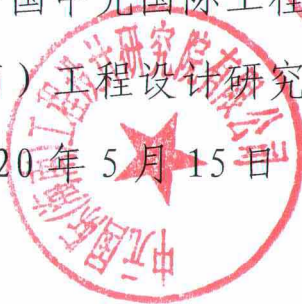 国中元国际工程
）工程设计研究
20年5月15日
中元国际(海南)工程设计研究院有限公司